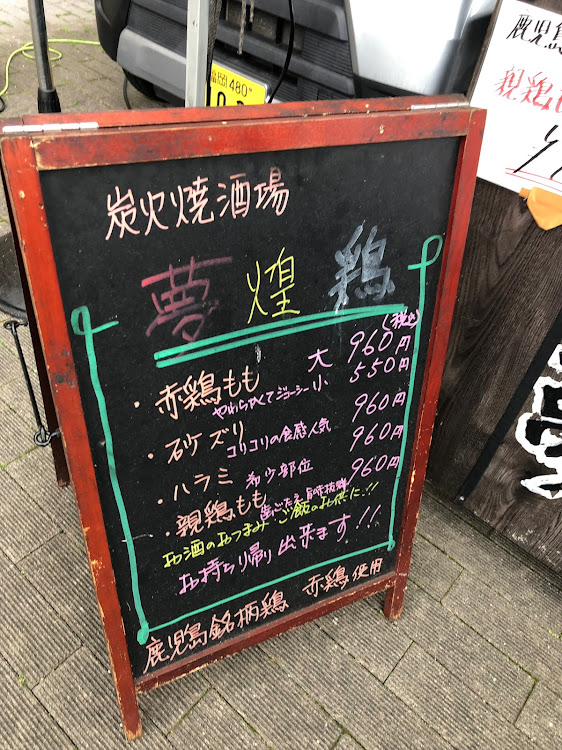 炭火焼酒場
夢煌鶏
(税込)
・赤鶏もも 大 960円
やわらかくてジューシー 小 550円
・砂ズリ 960円
コリコリの食感人気
・ハラミ 希少部位 960円
・親鶏もも 960円
歯ごたえ 旨味抜群
お酒のおつまみ ご飯のお供に!!
お持ち帰り出来ます!!!
鹿児島銘柄鶏 赤鶏使用
480
鹿児島
親鶏も